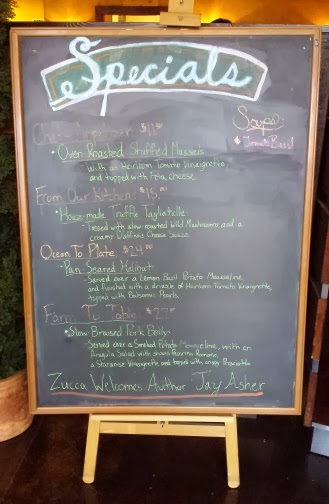 Specials
Soups:
Tomato Basil
Chef's Appetizer $11.00
• Oven Roasted Stuffed Mussels
with an Heirloom Tomato Vinaigrette,
and topped with Feta cheese
From Our Kitchen $15.00
• House-made Truffle Tagliatelle
Tossed with slow roasted Wild Mushrooms and a
creamy Cheese Sauce
Ocean To Plate $24.00
• Pan Seared Halibut
Served over a Lemon Basil Potato Mousseline,
and finished with a drizzle of Heirloom Tomato Vinaigrette,
topped with Balsamic Pearls
Farm To Table $22.00
• Slow Braised Pork Belly
Served over a Smoked Potato Mousseline, with an
Arugula Salad with shaved Pecorino Romano,
a Vinaigrette and topped with crispy Prosciutto
Zucca Welcomes Author: Jay Asher